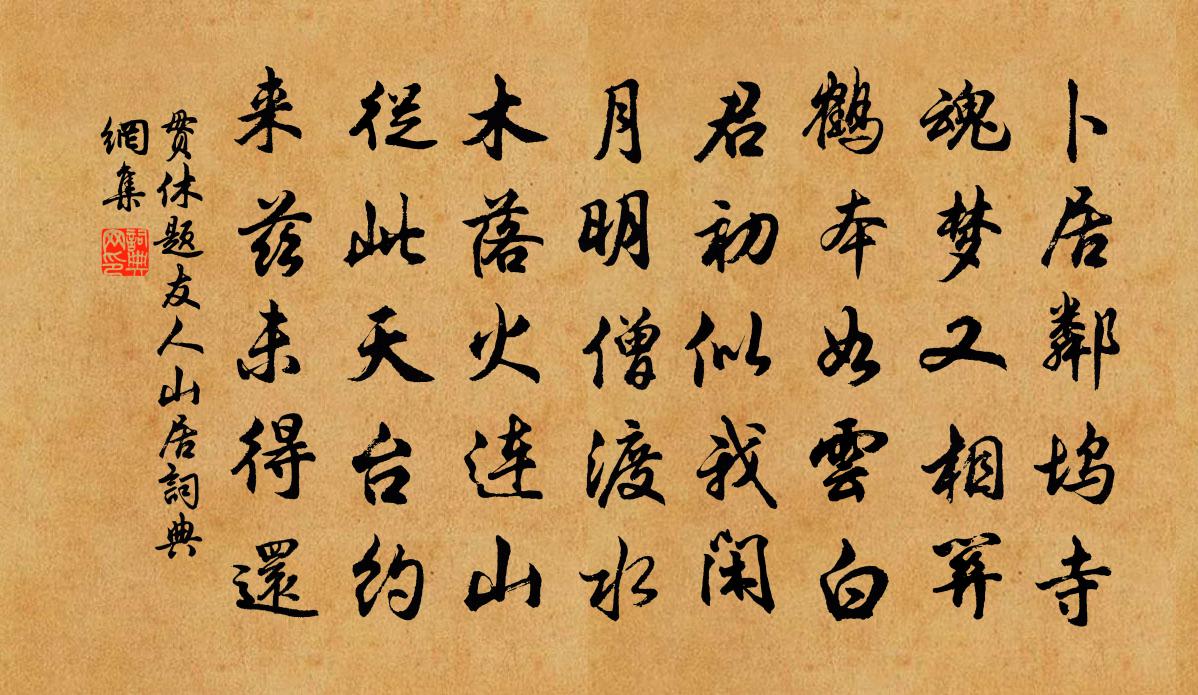 卜居鄰塢寺
魂梦又相關
鶴本如雲白
君初似我閑
月明僧渡水
木落火連山
從此天台約
来兹未得還
貫休題友人山居詞典
網集
詞典
网印